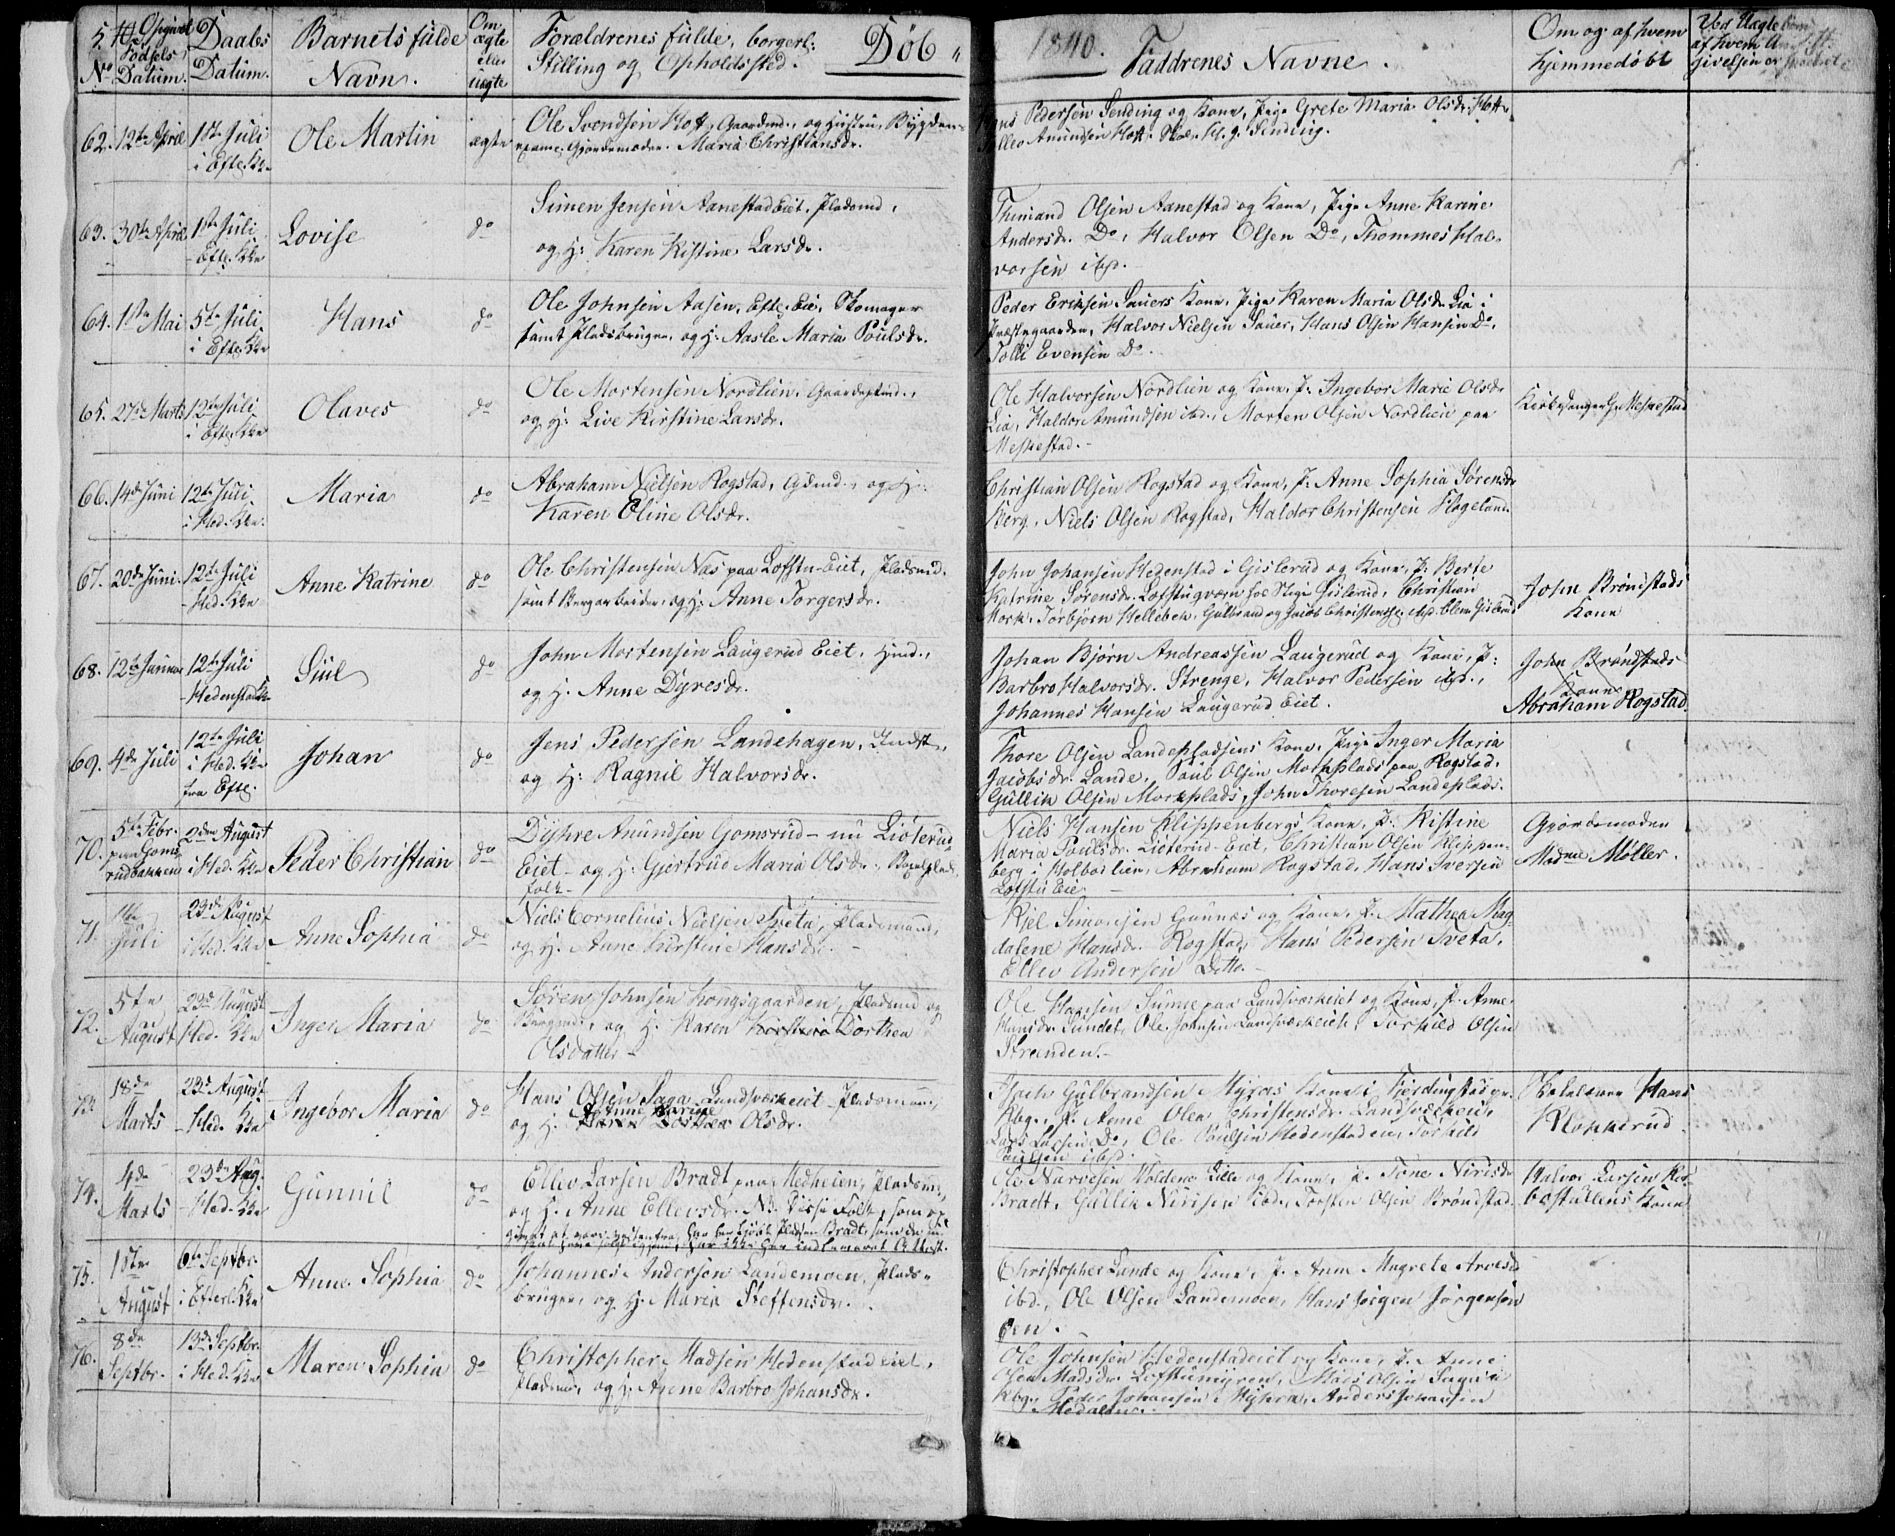 Døb 1840.
No Fødsels Datum. Daabs Datum. Barnets fulde Navn. Om ægte eller uægte Forældrenes fulde, borgerl: Stilling og Opholdssted. Faddrenes Navne. Om og af hvem hjemmedøbt
62. 12te April 1ste Juli i Efte. Kke Ole Martin ægte
Ole Svendsen Hoft, Gaardmd., og Hustru,
Gjordemoder Maria Christiansdr.
Pedersen Sending og Kone, Pige Grete Maria Olsdr. Hoft
Amundsen Hoft.
63. 30te April 1ste Juli Efte. Kke Lovise do
Simen Jensen Aanestad Eiet, Pladsmd,
og H: Karen Kistine Larsdr.
Olsen Aanestad og Kone, Pige Anne Karine
Andersdr. Do, Halvor Olsen Do, Thommes Hal-
vorsen ibd.
64. 1ste Mai 5te Juli i Efte. Kke Hans do
Ole Johnsen Aasen, Efte. Eie, Skomager
samt Pladsbruger, og H: Aasle Maria Poulsdr.
Peder Eriksen Sauers Kone, Pige Karen Maria Olsdr. Lia i
Præstegaarden, Halvor Nielsen Sauer, Hans Olsen Hansen Do,
Tolli Evensen Do.
65. 27de Marts 12te Juli i Efte. Kke Olaves do
Ole Mortensen Nordlien, Gaardmd.,
og H: Live Kirstine Larsdr.
Ole Halvorsen Nordlien og Kone, P. Ingebor Marie Olsdr.
Lia, Haldor Amundsen ibd., Morten Olsen Nordlien paa
Meskestad.
Meskestad
66. 14de Juni 12te Juli i Hed. Kke Maria do
Abraham Nielsen Rogstad, Gdmd., og H:
Karen Eline Olsdr.
Christian Olsen Rogstad og Kone, P. Anne Sophia Sørensdr.
Berg, Niels Olsen Rogstad, Haldor Christensen Hageland.
67. 20de Juni. 12te Juli Hed. Kke Anne Katrine do
Ole Christensen Næs paa Lofstu-Eiet, Pladsmd.
samt Bergarbeider, og H: Anne Torgersdr.
John Johansen Hedenstad i Gislerud og Kone, P. Berte
Katrine Sørensdr. Christian
Mork, Torbjørn Hellebek, Gulbrand og Jacob Christensen
John Brøndstads
Kone
68. 12te Januar 12te Juli Hedenstad Kke Siul do
John Mortensen Laugerud Eiet,
og H. Anne Dyresdr.
Johan Bjørn Andreassen Laugerud og Kone, P:
Barbro Halvorsdr. Strenge, Halvor Pedersen ibd.,
Johannes Hansen Laugerud Eiet.
John Brøndstads
Kone
Abraham Rogstad.
69. 4de Juli 12te Juli i Hed. Kke fra Efte. Johan do
Jens Pedersen Landehagen, Indst.,
og H: Ragnil Halvorsdr.
Thore Olsen Landepladsens Kone, Pige Inger Maria
Jacobsdr. Lande, Poul Olsen Morkplads paa Rogstad,
Gullik Olsen Morkplads, John Thoresen Landeplads.
70. 5te Febr. paa Gomsrudbakken 2den August i Hed. Kke Peder Christian do
Dyhre Amundsen Gomsrud - nu Liøterud
Eiet - og H: Gjertrud Maria Olsdr.,
folk -
Niels Hansen Klippenbergs Kone, P. Kistine
Maria Poulsdr. Liøterud-Eiet, Christian Olsen Klippen-
berg i Holbæklien, Abraham Rogstad, Hans Iversen
Lofstu Eie -
Gjordemoder
Madme Møller.
71. Juli 23de August i Hed. Kke Anne Sophia do
Niels Cornelius Nielsen Tveta, Pladsmand,
og H. Anne Kirstine Hansdr. -
Kjel Simonsen Gunnes og Kone, P. Mathea Mag-
dalene Hansdr. Rogstad, Hans Pedersen Tveta,
Ellev Andersen Ditto. -
72. 5te August 23de August Hed. Kke Inger Maria do
Søren Johnsen Kongsgaarden, Pladsmd og
og H. Karen Kirstine Dorthea
Olsdatter -
Ole Hansen Sume paa Landsværkeiet og Kone, P. Anne
Hansdr. Sundet, Ole Johnsen Landsværkeiet, Torkild Olsen
Stranden. -
73. 18de Marts 23de August Hed. Kke Ingebor Maria do
Hans Olsen Saga Landsværkeiet Pladsmand,
Anne Karine
og H. Karen Dorthea Olsdr.
Isach Gulbrandsen Myras Kone i Fjerdingstad pr.
Kbg., P. Anne Olea Christensdr. Landsværkeiet,
Lars Larsen Do, Ole Poulsen Hedenstadeie, Torkild
Poulsen ibd.
Skolelærer Hans
Klokkerud.
74. 4de Marts 23de Aug. Hed. Kke Gunnil do
Ellev Larsen Bradt paa Medheien, Pladsm.,
og H. Anne Ellevsdr. NB. Disse Folk, som op-
Ole Narvesen Moldene Lille og Kone, P. Tone Nirisdr.
Bradt, Gullik Nirisen ibd., Torsten Olsen Brøndstad.
Halvor Larsen
Kone
75. 1ste August 6te Septbr. i Efterl. Kke Anne Sophia do
Johannes Andersen Landemoen, Plads-
bruger, og H. Maria Steffensdr.
Christopher Lande og Kone, P. Anne Magrete Arvesdr.
ibd., Ole Olsen Landemoen, Hans Jørgen Jørgensen
76. 8de Septbr. 13de Septbr. i Hed. Kke Maren Sophia do
Christopher Madsen Hedenstadeiet,
Pladsmd, og H. Anne Barbro Johansdr.
Ole Johnsen Hedenstadeiet og Kone, P. Anne
Olea Madsdr. Lofstumyren, Mads Olsen Saga i
Kbg., Peder Johansen Myhra, Anders Johansen
Medalen.